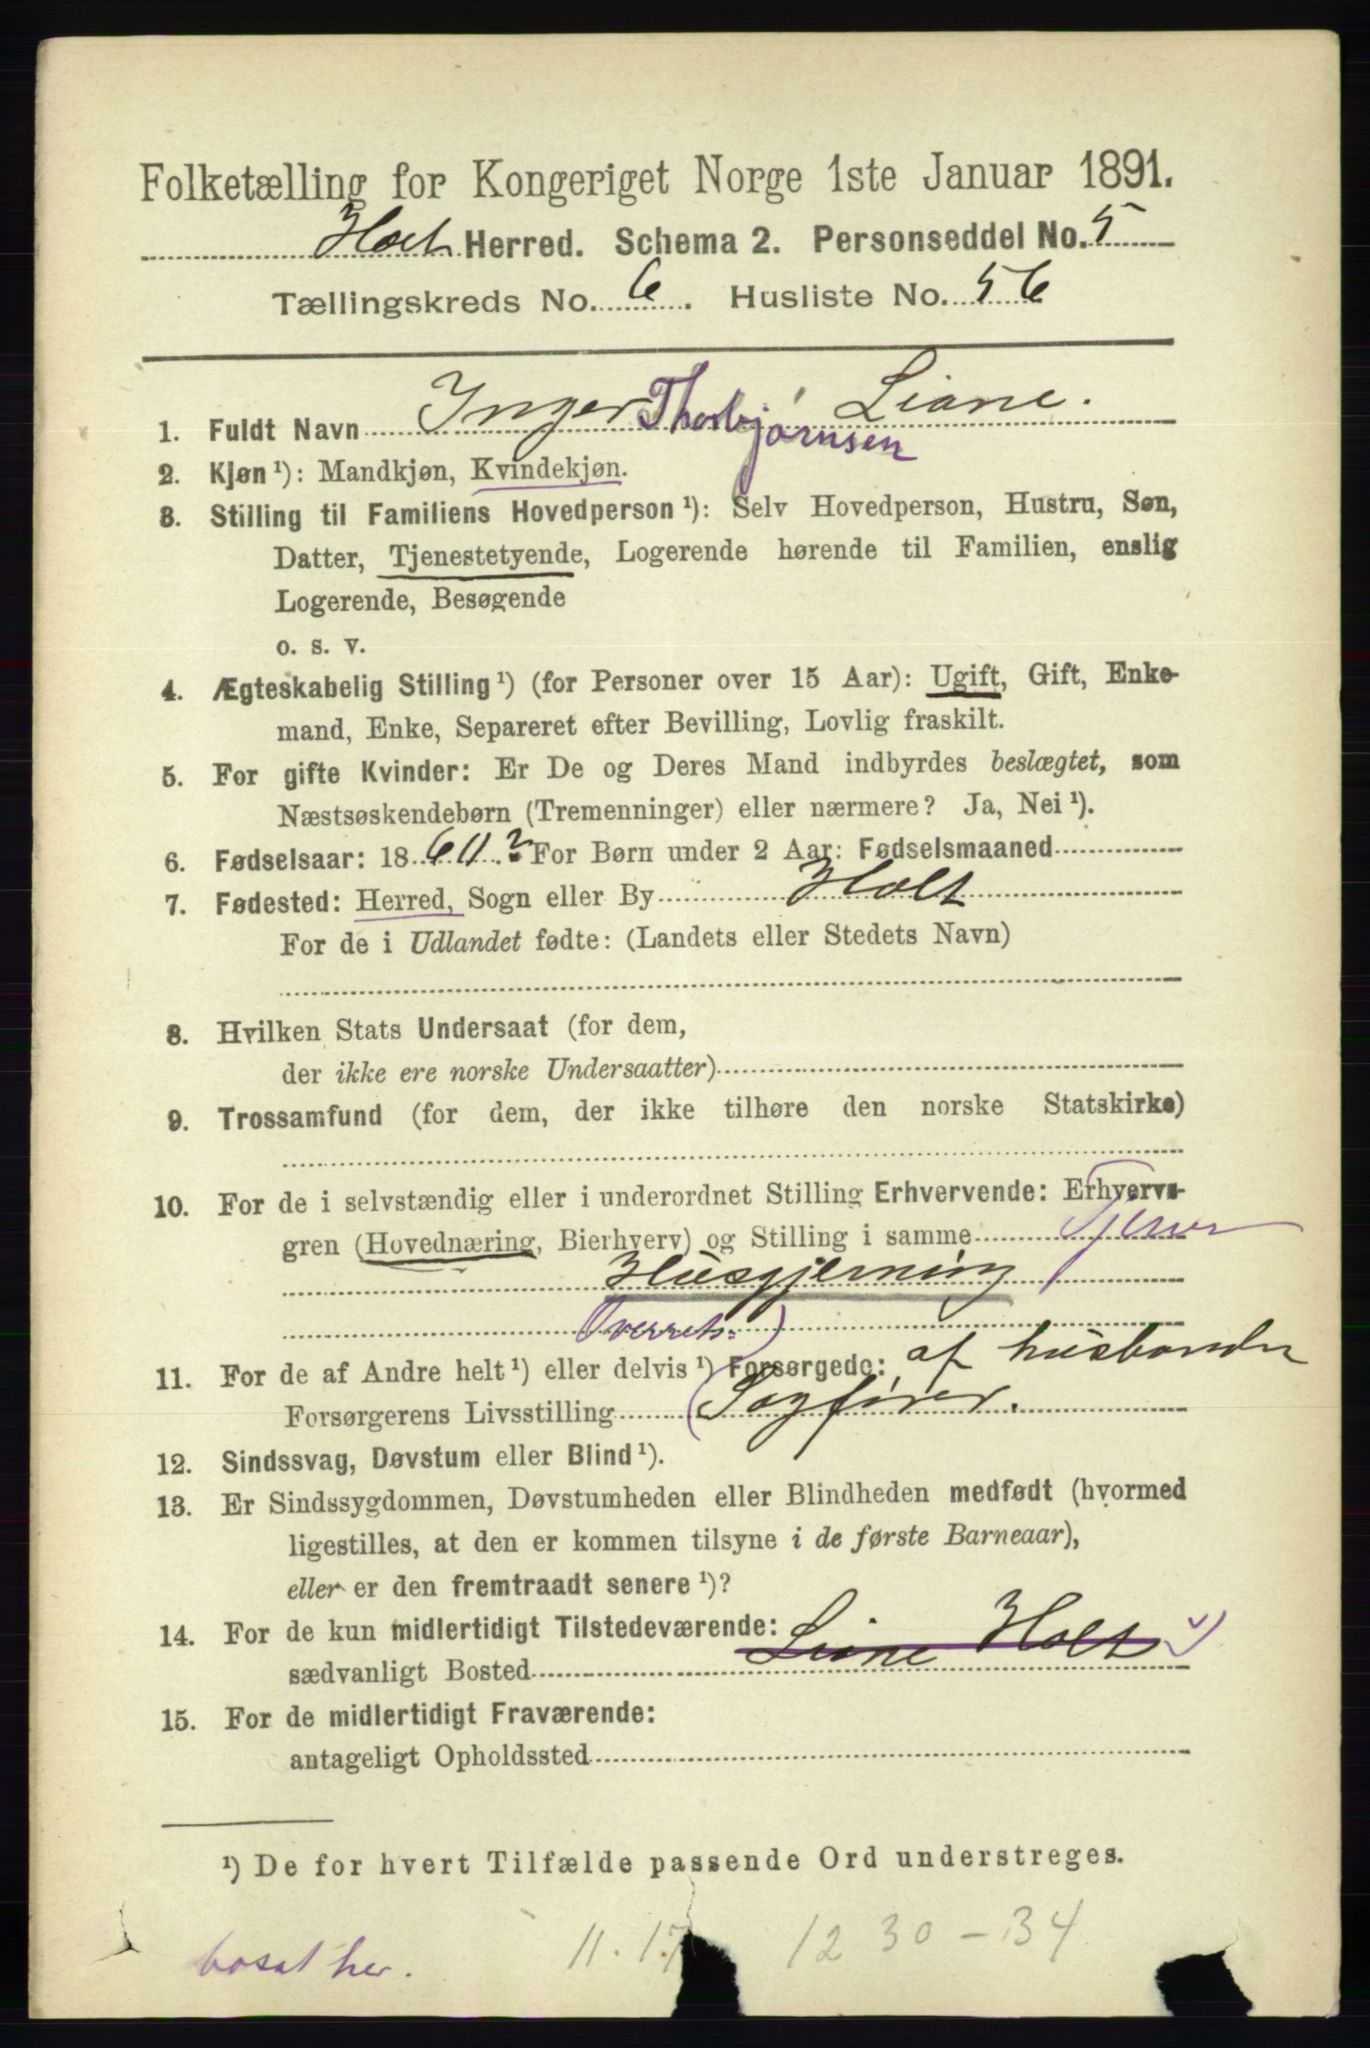 Folketælling for Kongeriget Norge 1ste Januar 1891.
Holt Herred. Schema 2. Personseddel No. 5
Tællingskreds No. 6. Husliste No. 56
1. Fuldt Navn Inger Thorbjørnsen Liane.
2. Kjøn ¹): Mandkjøn, Kvindekjøn.
3. Stilling til Familiens Hovedperson ¹): Selv Hovedperson, Hustru, Søn,
Datter, Tjenestetyende, Logerende hørende til Familien, enslig
Logerende, Besøgende
o. s. v.
4. Ægteskabelig Stilling ¹) (for Personer over 15 Aar): Ugift, Gift, Enke-
mand, Enke, Separeret efter Bevilling, Lovlig fraskilt.
5. For gifte Kvinder: Er De og Deres Mand indbyrdes beslægtet, som
Næstsøskendebørn (Tremenninger) eller nærmere? Ja, Nei ¹).
6. Fødselsaar: 18 For Børn under 2 Aar: Fødselsmaaned
7. Fødested: Herred, Sogn eller By Holt
For de i Udlandet fødte: (Landets eller Stedets Navn)
8. Hvilken Stats Undersaat (for dem,
der ikke ere norske Undersaatter)
9. Trossamfund (for dem, der ikke tilhøre den norske Statskirke)
10. For de i selvstændig eller i underordnet Stilling Erhvervende: Erhvervs-
gren (Hovednæring, Bierhverv) og Stilling i samme
Husgjerning
Overrets=
11. For de af Andre helt ¹) eller delvis ¹) Forsørgede: af husbonde
Forsørgerens Livsstilling (Sagfører.
12. Sindssvag, Døvstum eller Blind ¹).
13. Er Sindssygdommen, Døvstumheden eller Blindheden medfødt (hvormed
ligestilles, at den er kommen tilsyne i de første Barneaar),
eller er den fremtraadt senere ¹)?
14. For de kun midlertidigt Tilstedeværende: Liane Holt
sædvanligt Bosted
15. For de midlertidigt Fraværende:
antageligt Opholdssted
¹) De for hvert Tilfælde passende Ord understreges.
bosat her. 11.17 12 30 - 34